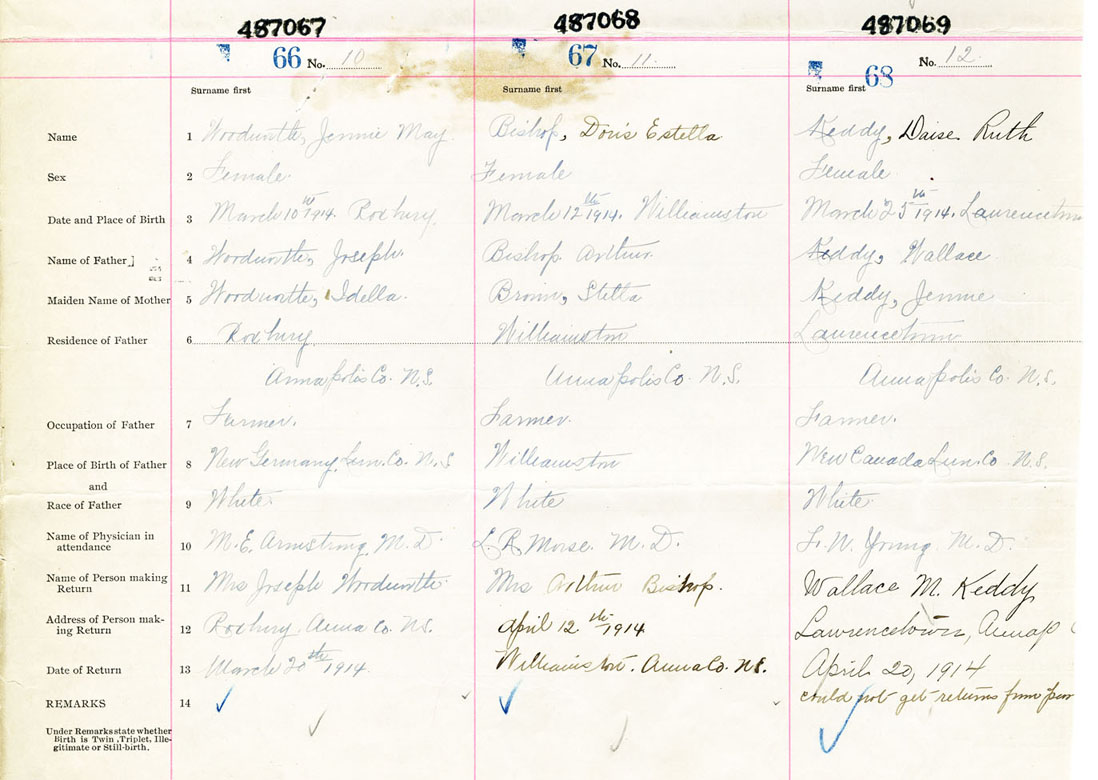 487067 487068 487069
66 No. 10 67 No. 11. 68 No. 12.
Surname first Surname first Surname first
Name 1 Woodworth, Jennie May Bishop, Doris Estella Keddy, Daise Ruth
Sex 2 Female Female Female
Date and Place of Birth 3 March 10th 1914. Roxbury. March 12th 1914. Williamston March 25th 1914. Laurencetown
Name of Father] 4 Woodworth, Joseph. Bishop Arthur. Keddy, Wallace
Maiden Name of Mother 5 Woodworth, Idella. Stella Keddy, Jennie
Residence of Father 6 Roxbury Williamston Laurencetown
Annapolis Co. N.S. Annapolis Co. N.S. Annapolis Co. N.S.
Occupation of Father 7 Farmer. Farmer. Farmer.
Place of Birth of Father 8 New Germany Lun. Co. N.S Williamston New Canada Lun. Co N.S.
and
Race of Father 9 White. White White
Name of Physician in
attendance 10 M.E. Armstrong M.D. L.R. Morse. M.D. F.W. Young M.D.
Name of Person making
Return 11 Mrs Joseph Woodworth Mrs Arthur Bishop. Wallace M. Keddy
Address of Person mak-
ing Return 12 Roxbury Anna Co. N.S. April 12th 1914 Lawrencetown, Annap
Date of Return 13 March 20th 1914. Williamston. Anna Co. N.S. April 20, 1914
REMARKS 14 could not get returns from
Under Remarks state whether
Birth is Twin, Triplet, Ille-
gitimate or Still-birth.